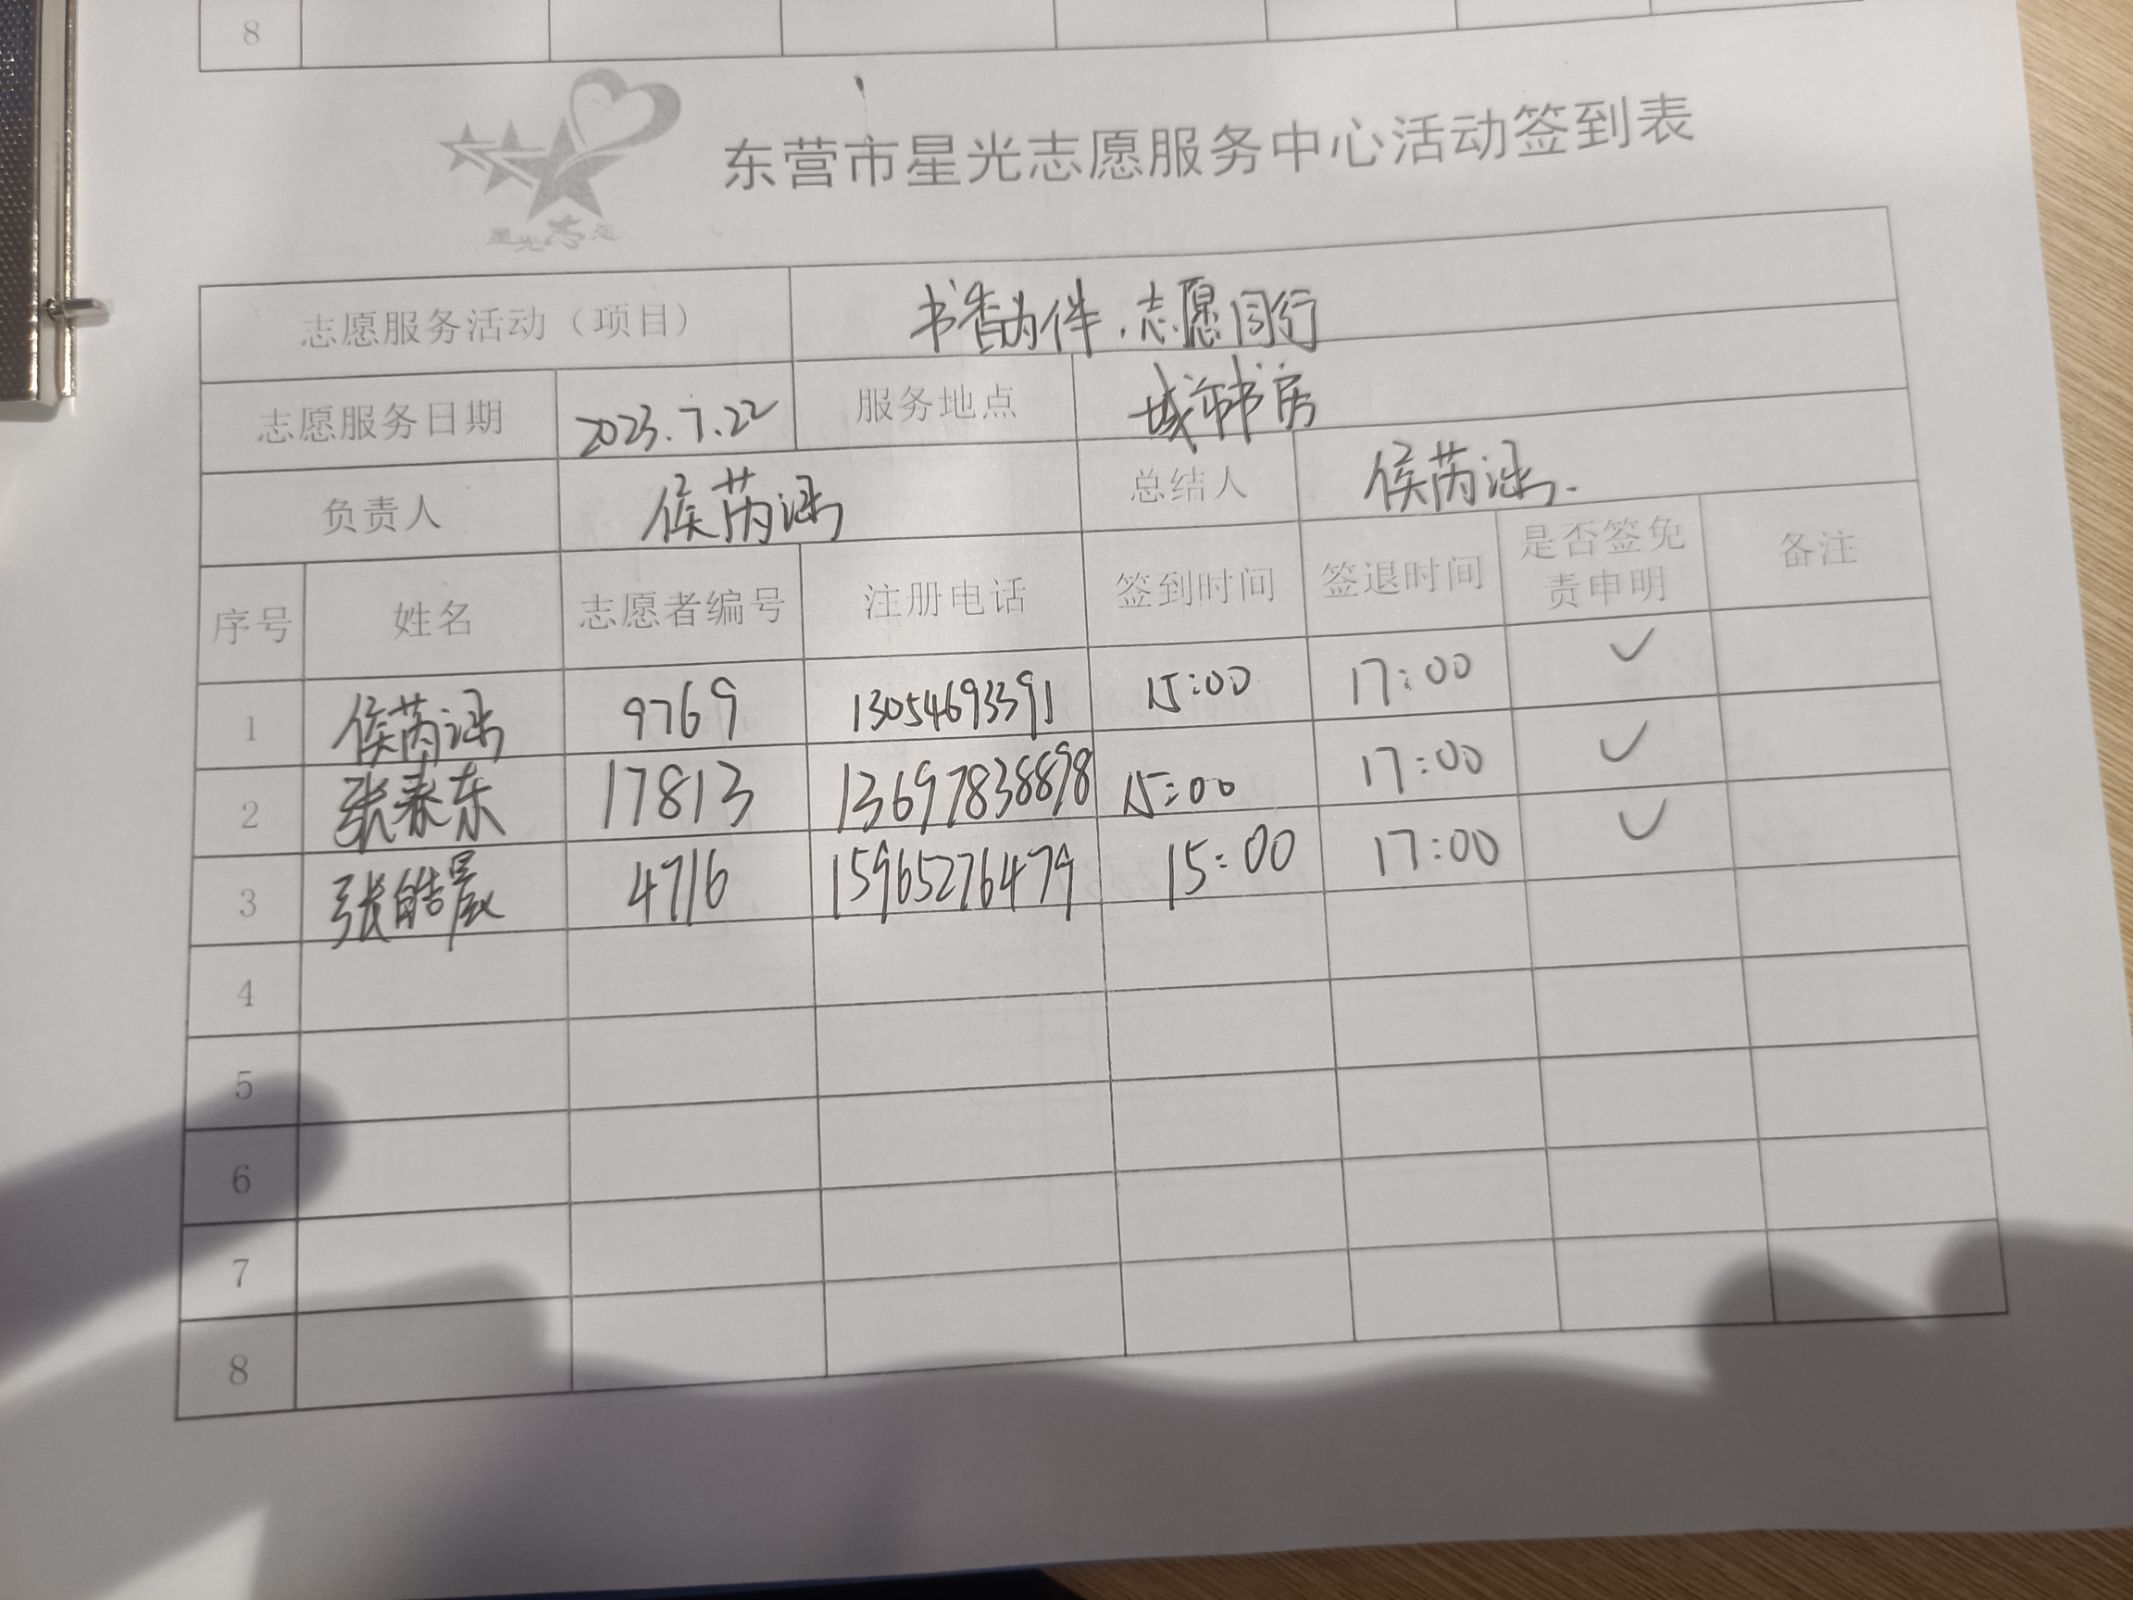 8
东营市星光志愿服务中心活动签到表
星光志愿
志愿服务活动（项目） 书香为伴，志愿同行
志愿服务日期 2023.7.22 服务地点 城市书房
负责人 侯芮涵 总结人 侯芮涵.
序号 姓名 志愿者编号 注册电话 签到时间 签退时间 是否签免责申明 备注
1 侯芮涵 9769 13054693391 15:00 17:00 ✓
2 张春东 17813 13697838898 15:00 17:00 ✓
3 张皓晟 4716 15965276479 15:00 17:00 ✓
4
5
6
7
8